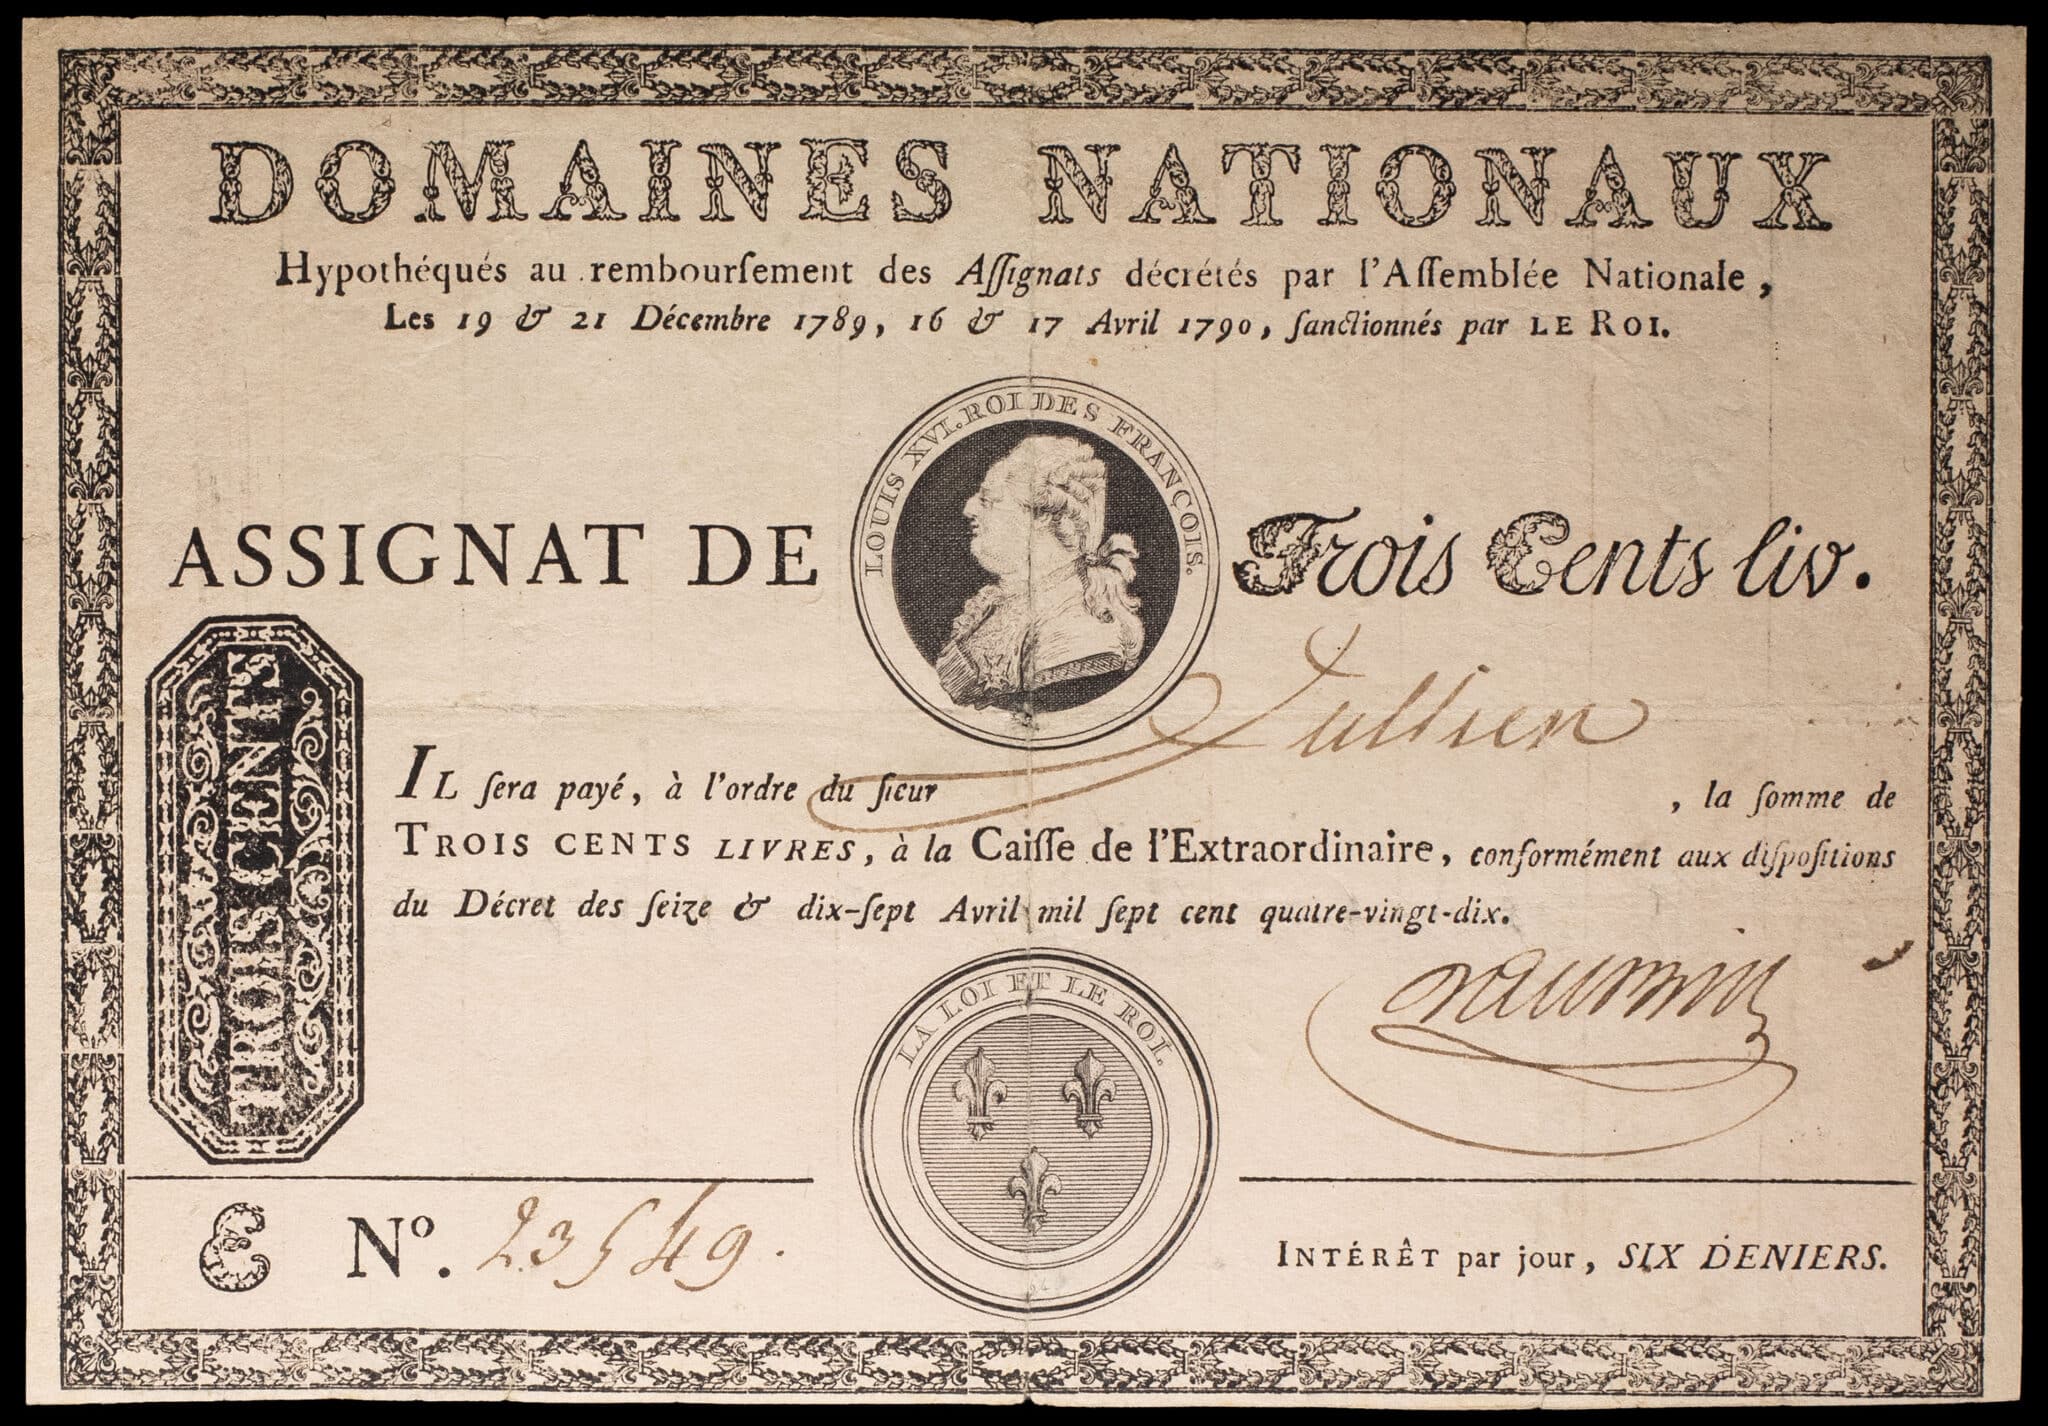 DOMAINES NATIONAUX
Hypothéqués au rembourſement des Aſſignats décrétés par l'Aſſemblée Nationale,
Les 19 & 21 Décembre 1789, 16 & 17 Avril 1790, ſanctionnés par LE ROI.
LOUIS XVI. ROI DES FRANÇOIS.
ASSIGNAT DE Trois Cents liv.
TROIS CENTS
Jullien
IL ſera payé, à l'ordre du ſieur , la ſomme de
TROIS CENTS LIVRES, à la Caiſſe de l'Extraordinaire, conformément aux diſpoſitions
du Décret des ſeize & dix-ſept Avril mil ſept cent quatre-vingt-dix.
LA LOI ET LE ROI.
E No. 23549.
INTÉRÊT par jour, SIX DENIERS.